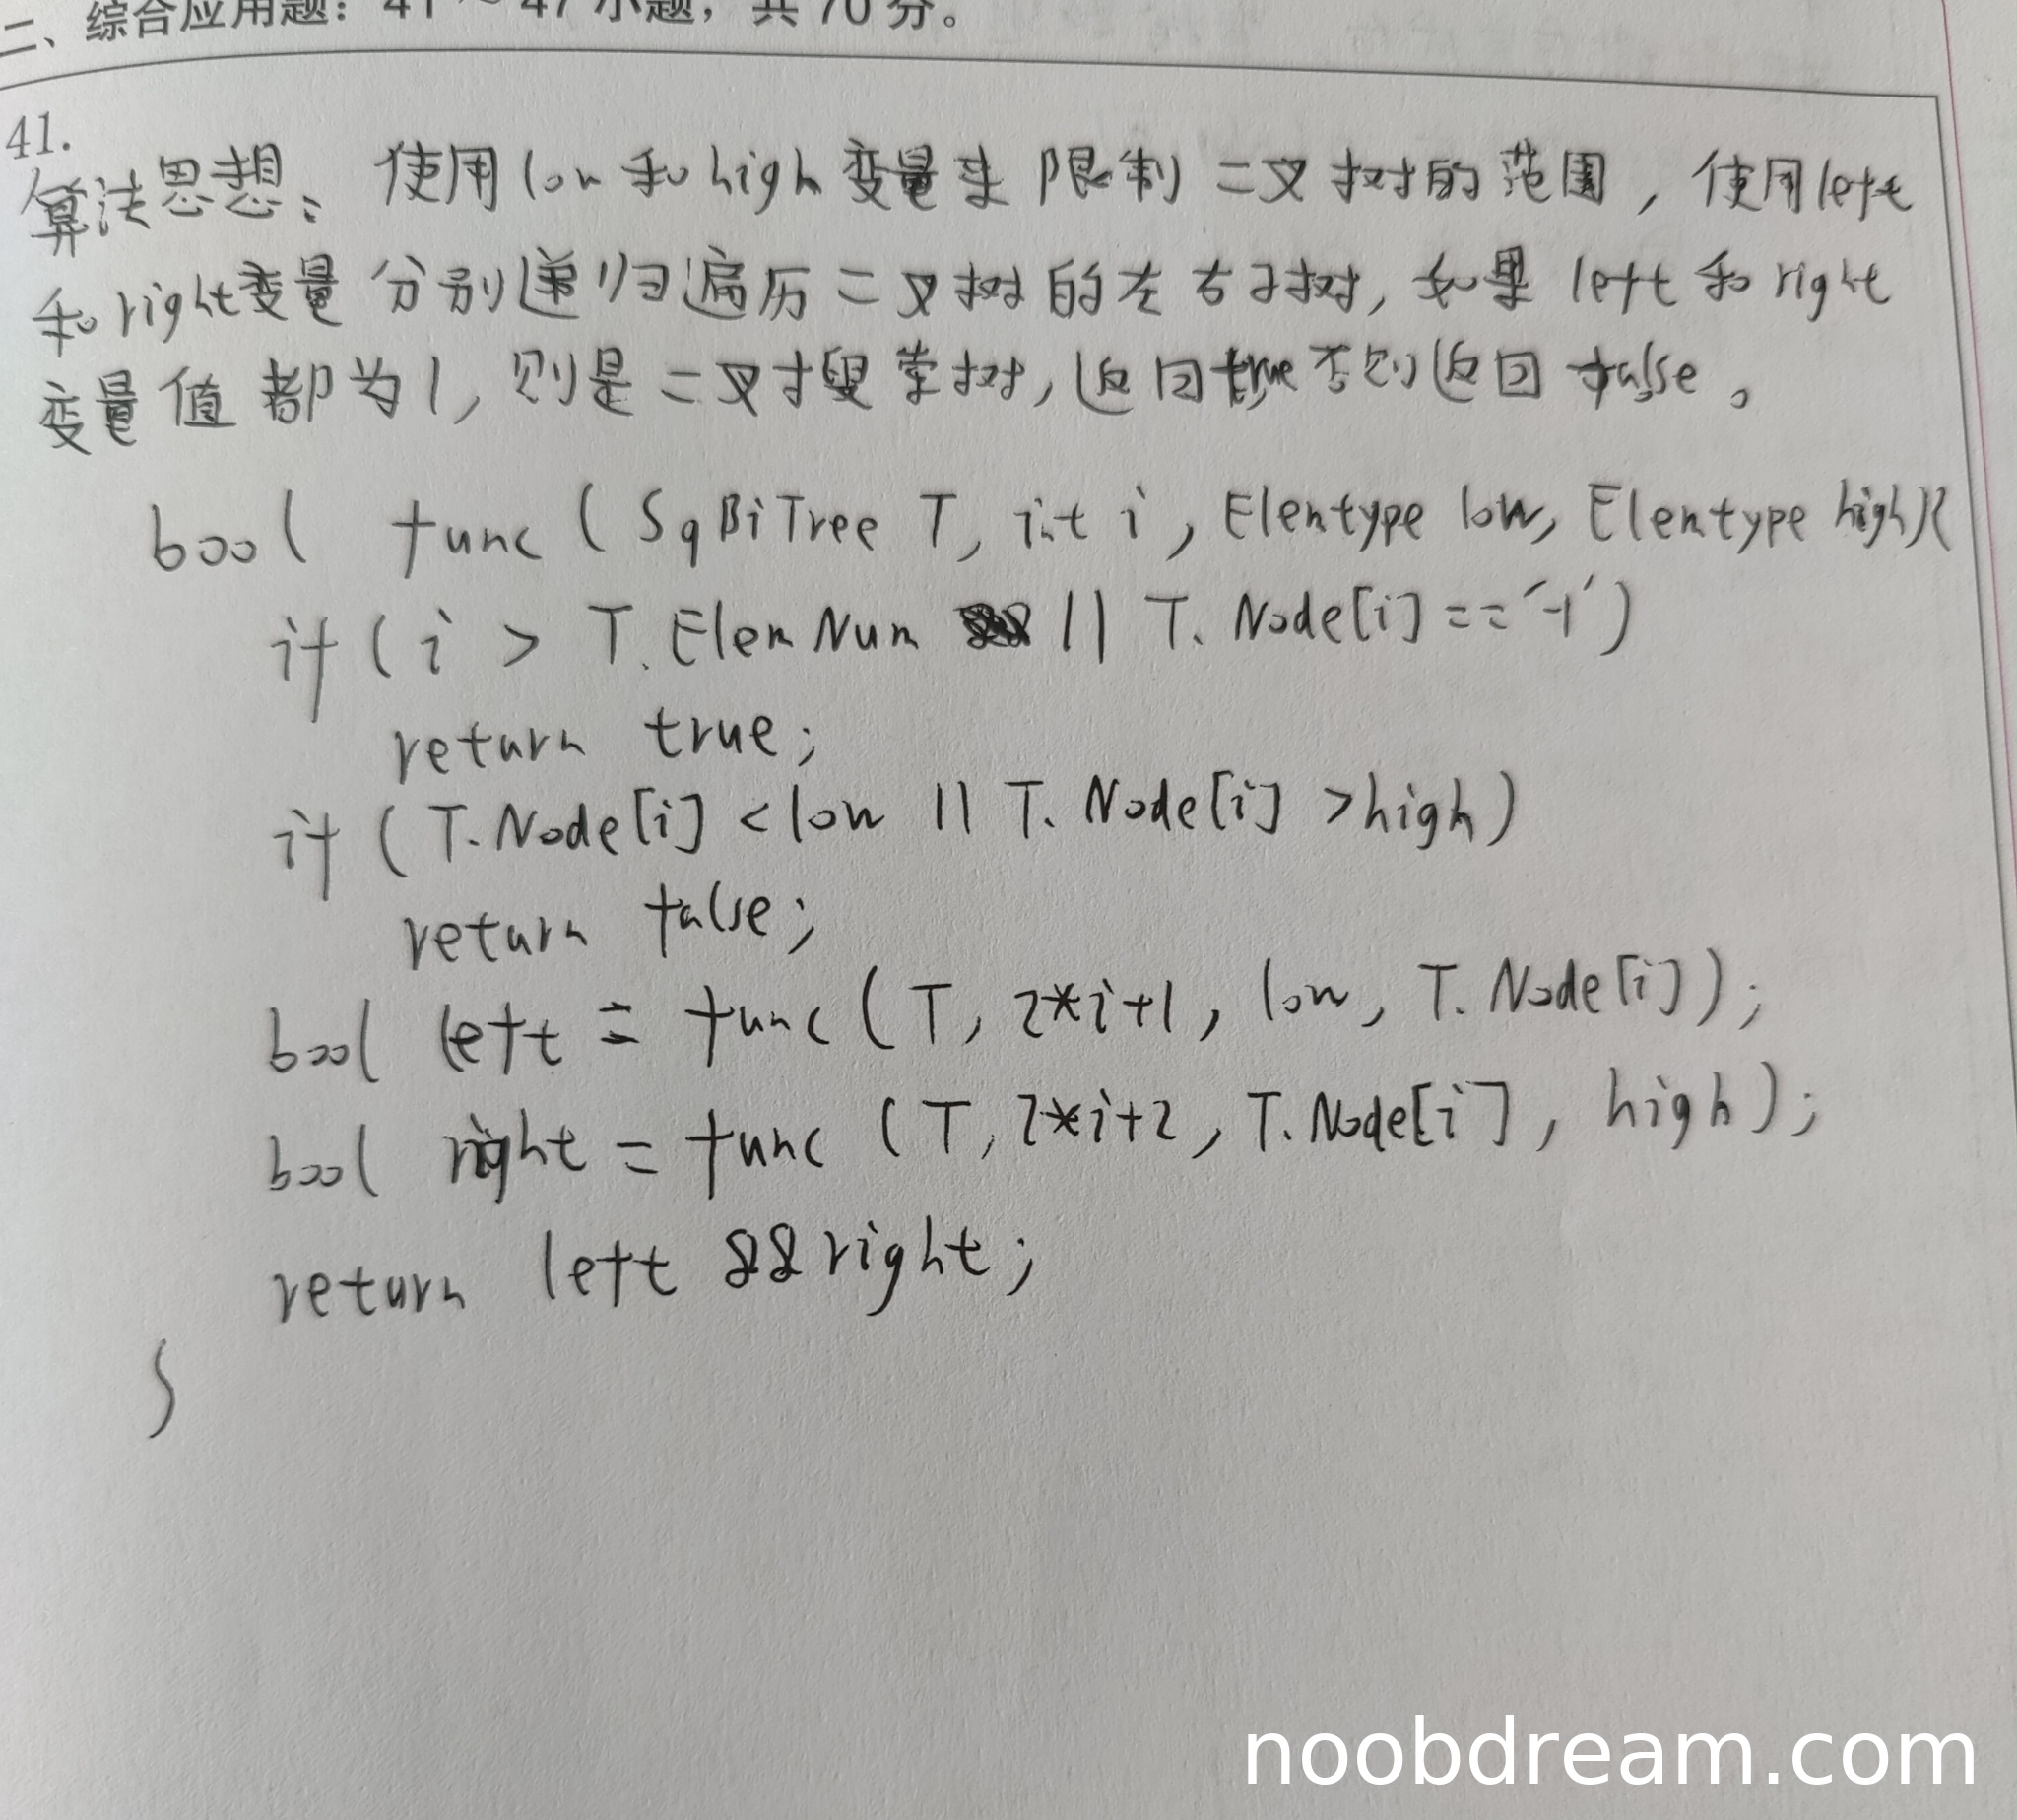 二、综合应用题：41～47小题，共70分。
41.
算法思想：使用low和high变量来限制二叉树的范围，使用left
和right变量分别递归遍历二叉树的左右子树，如果left和right
变量值都为1，则是二叉搜索树，返回true否则返回false。
bool func(SqBiTree T, int i, Elemtype low, Elemtype high){
if(i > T.ElemNum || T.Node[i]=='-1')
return true;
if(T.Node[i]<low || T.Node[i]>high)
return false;
bool left = func(T, 2*i+1, low, T.Node[i]);
bool right = func(T, 2*i+2, T.Node[i], high);
return left &&right;
}
noobdream.com